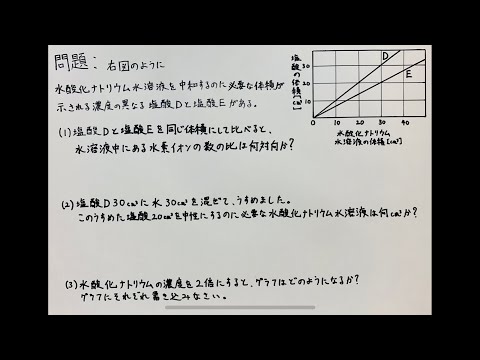 問題: 右図のように
水酸化ナトリウム水溶液を中和するのに必要な体積が
示される濃度の異なる塩酸Dと塩酸Eがある。
(1)塩酸Dと塩酸Eを同じ体積にして比べると、
水溶液中にある水素イオンの数の比は何対何か?
(2)塩酸D30cm³に水30cm³を混ぜて、うすめました。
このうすめた塩酸20cm³を中性にするのに必要な水酸化ナトリウム水溶液は何cm³か?
(3)水酸化ナトリウムの濃度を2倍にすると、グラフはどのようになるか?
グラフにそれぞれ書き込みなさい。
塩酸の体積[cm³]
30
20
10
0
D
E
10 20 30 40
水酸化ナトリウム
水溶液の体積[cm³]